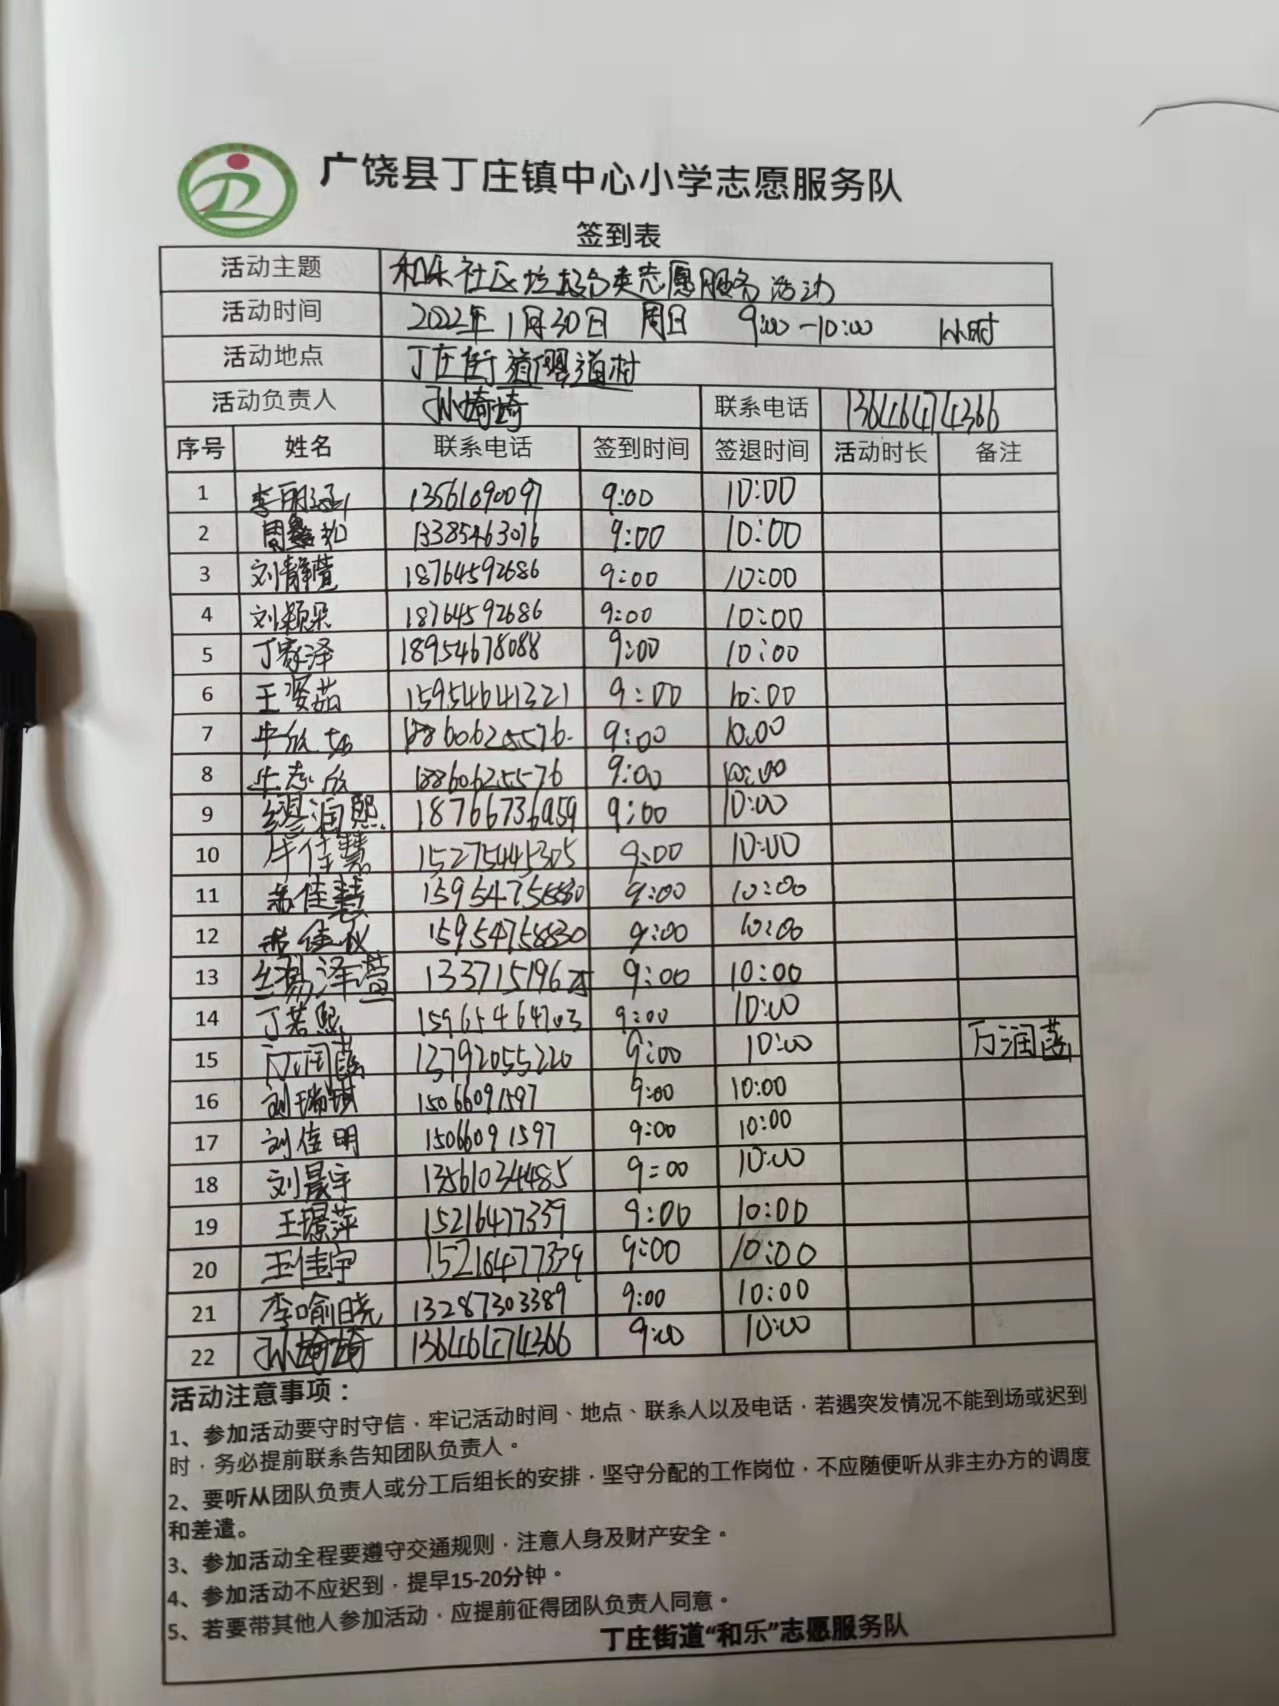 广饶县丁庄镇中心小学志愿服务队
签到表
活动主题 和乐社区垃圾分类志愿服务活动
活动时间 2022年1月30日 周日 9:00-10:00 1小时
活动地点 丁庄街道缪道村
活动负责人 孙崎崎 联系电话 13646474366
序号 姓名 联系电话 签到时间 签退时间 活动时长 备注
1 李丽涵 13561090097 9:00 10:00
2 周鑫和 13385463076 9:00 10:00
3 刘静萱 18764592686 9:00 10:00
4 刘颖朵 18764592686 9:00 10:00
5 丁家泽 18954678088 9:00 10:00
6 王姿茹 15954641321 9:00 10:00
7 牛欣如 13860625576 9:00 10:00
8 牛志欣 13860625576 9:00 10:00
9 缪润熙 18766736959 9:00 10:00
10 牛佳慧 15275445305 9:00 10:00
11 佳慧 15954758830 9:00 10:00
12 佳仪 15954758830 9:00 10:00
13 泽萱 133715196 9:00 10:00
14 丁若熙 15965464703 9:00 10:00
15 万润菡 13792055220 9:00 10:00 万润菡
16 刘瑞琪 15066091597 9:00 10:00
17 刘佳明 15066091597 9:00 10:00
18 刘晨宇 13561034485 9:00 10:00
19 王璟萍 15216477339 9:00 10:00
20 王佳宁 15216477339 9:00 10:00
21 李喻晓 13287303389 9:00 10:00
22 孙崎崎 13646474366 9:00 10:00
活动注意事项：
1、参加活动要守时守信，牢记活动时间、地点、联系人以及电话，若遇突发情况不能到场或迟到
时，务必提前联系告知团队负责人。
2、要听从团队负责人或分工后组长的安排，坚守分配的工作岗位，不应随便听从非主办方的调度
和差遣。
3、参加活动全程要遵守交通规则，注意人身及财产安全。
4、参加活动不应迟到，提早15-20分钟。
5、若要带其他人参加活动，应提前征得团队负责人同意。
丁庄街道“和乐”志愿服务队